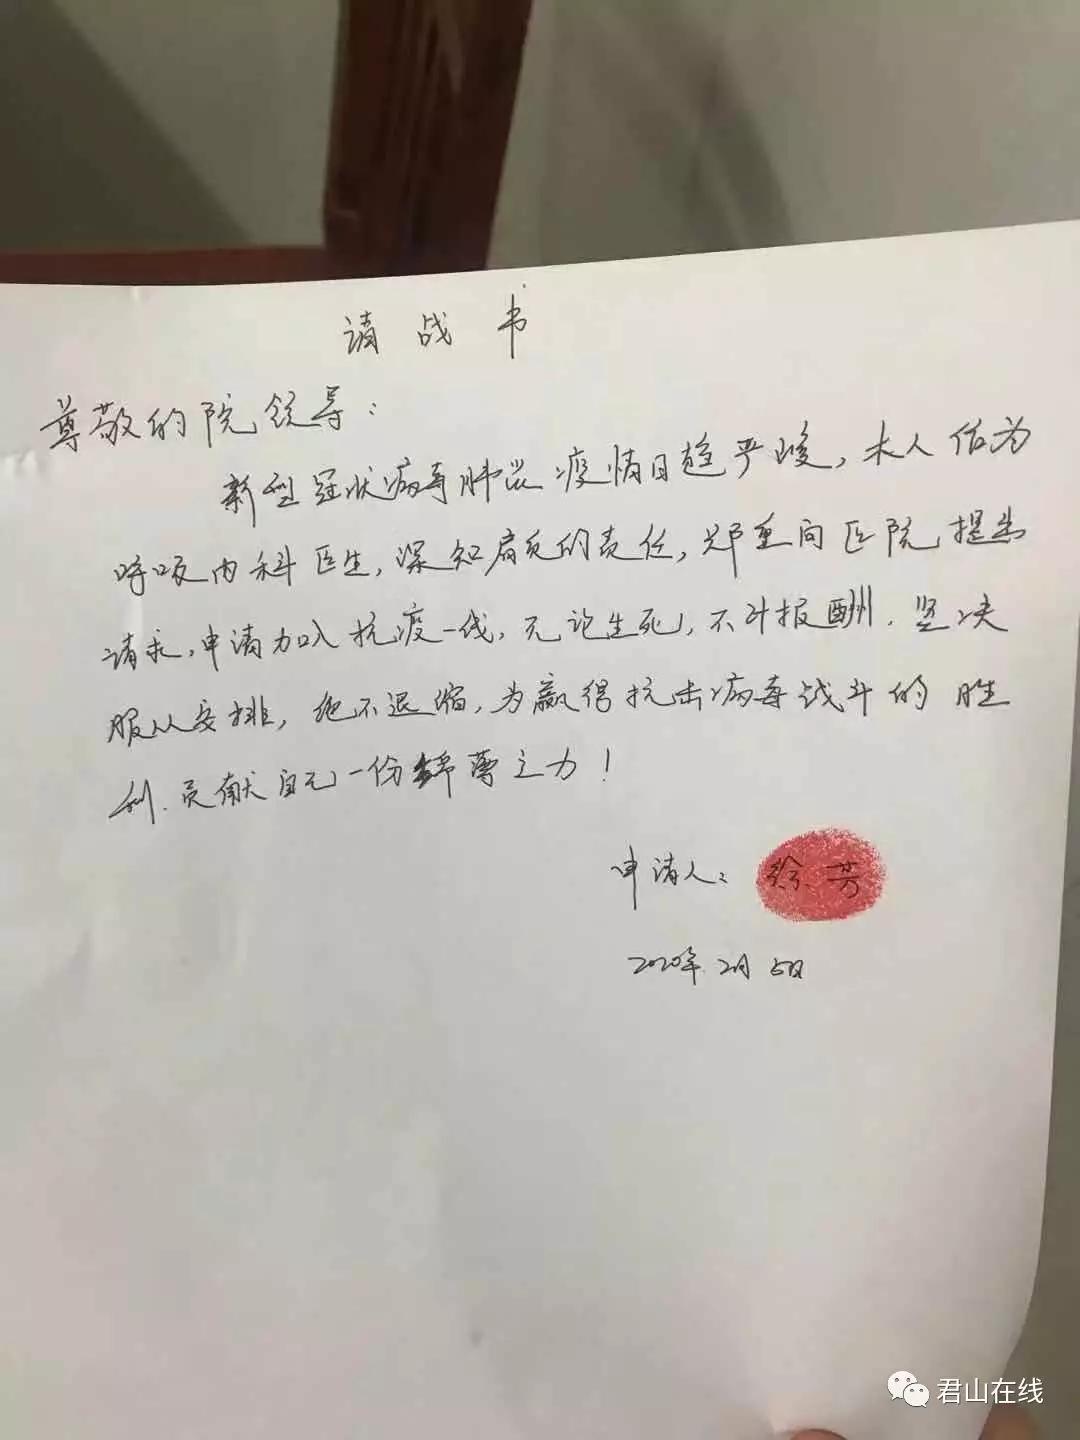 请战书
尊敬的院领导：
新型冠状病毒肺炎疫情日趋严峻，本人作为
呼吸内科医生，深知肩负的责任，郑重向医院提出
请求，申请加入抗疫一线，无论生死，不计报酬．坚决
服从安排，绝不退缩，为赢得抗击病毒战斗的胜
利．贡献自己一份绵薄之力！
申请人：徐芳
2020年2月5日
君山在线